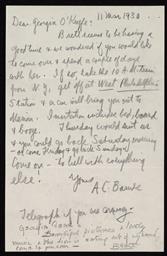 Dear Georgia O'Keeffe: 11 Mar 1930
B seems to be having a
good time & we wondered if you would like
to come over & spend a couple of days
with her. If so take the 10 A.M. train
from N.Y., get off at West Philadelphia
Station & a car will bring you to
Merion. Invitation includes bed, board
& booze.
Thursday would suit us
& you could go back Saturday morning
or come Friday & go back Sunday.
Come on - to hell with everything
else!
Yours
A.C. Barnes
Telegraph if you are coming.
Georgia dear
Beautiful pictures & lovely
music &
come to